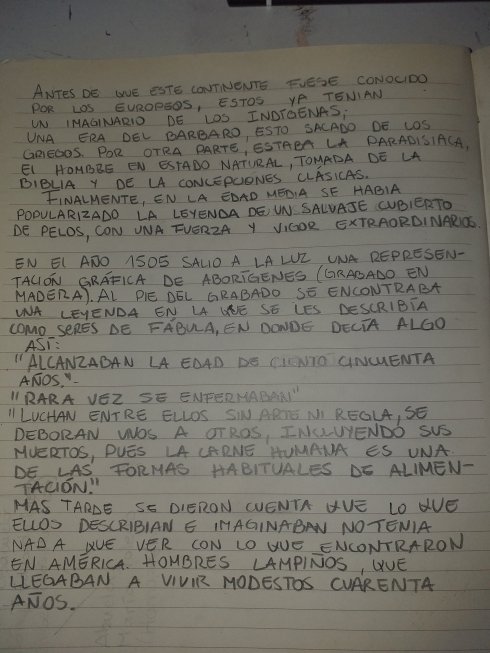 ANTES DE QUE ESTE CONTINENTE FUESE CONOCIDO
POR LOS EUROPEOS, ESTOS YA TENIAN
UN IMAGINARIO DE LOS INDÍGENAS;
UNA ERA DEL BARBARO, ESTO SACADO DE LOS
GRIEGOS. POR OTRA PARTE, ESTABA LA PARADISIACA,
EL HOMBRE EN ESTADO NATURAL, TOMADA DE LA
BIBLIA Y DE LA CONCEPCIONES CLÁSICAS.
FINALMENTE, EN LA EDAD MEDIA SE HABIA
POPULARIZADO LA LEYENDA DE UN SALVAJE CUBIERTO
DE PELOS, CON UNA FUERZA Y VIGOR EXTRAORDINARIOS.
EN EL AÑO 1505 SALIO A LA LUZ UNA REPRESEN-
TACIÓN GRÁFICA DE ABORÍGENES (GRABADO EN
MADERA). AL PIE DEL GRABADO SE ENCONTRABA
UNA LEYENDA EN LA QUE SE LES DESCRIBÍA
COMO SERES DE FÁBULA, EN DONDE DECÍA ALGO
ASÍ:
"ALCANZABAN LA EDAD DE CIENTO CINCUENTA
AÑOS."-
"RARA VEZ SE ENFERMABAN"
"LUCHAN ENTRE ELLOS SIN ARTE NI REGLA, SE
DEBORAN UNOS A OTROS, INCLUYENDO SUS
MUERTOS, PUES LA CARNE HUMANA ES UNA
DE LAS FORMAS HABITUALES DE ALIMEN-
TACIÓN."
MAS TARDE SE DIERON CUENTA QUE LO QUE
ELLOS DESCRIBIAN E IMAGINABAN NO TENIA
NADA QUE VER CON LO QUE ENCONTRARON
EN AMÉRICA. HOMBRES LAMPIÑOS, QUE
LLEGABAN A VIVIR MODESTOS CUARENTA
AÑOS.